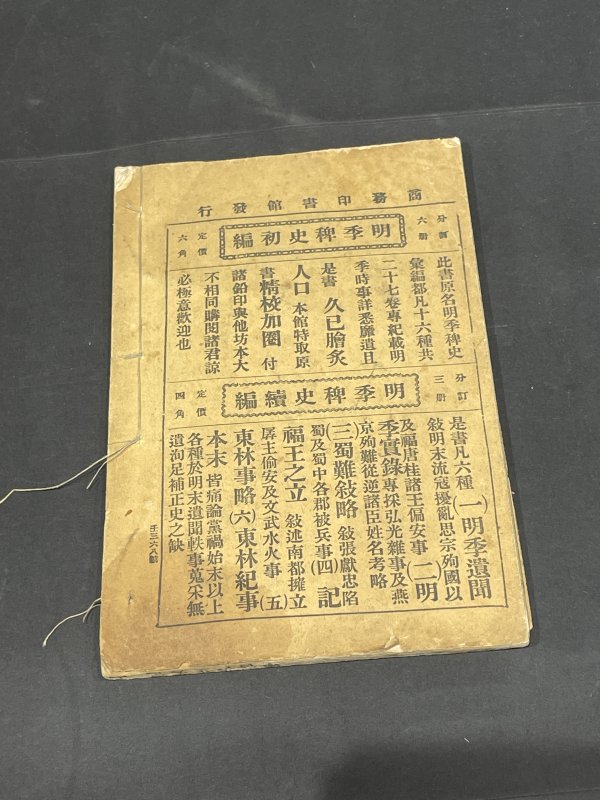 商務印書館發行
分訂六册
明季稗史初編
定價六角
此書原名明季稗史
彙編都凡十六種共
二十七卷專紀載明
季時事詳悉靡遺且
是書久已膾炙
人口本館特取原
書精校加圈付
諸鉛印與他坊本大
不相同購閱諸君諒
必極意歡迎也
分訂三册
明季稗史續編
定價四角
是書凡六種(一)明季遺聞
敘明末流寇擾亂思宗殉國以
及福唐桂諸王偏安事(二)明
季實錄專採弘光雜事及燕
京殉難從逆諸臣姓名考略
(三)蜀難敘略敘張獻忠陷
蜀及蜀中各郡被兵事(四)記
福王之立敘述南都擁立
孱主偷安及文武水火事(五)
東林事略(六)東林紀事
本末皆痛論黨禍始末以上
各種於明末遺聞軼事蒐采無
遺洵足補正史之缺
壬三六八號